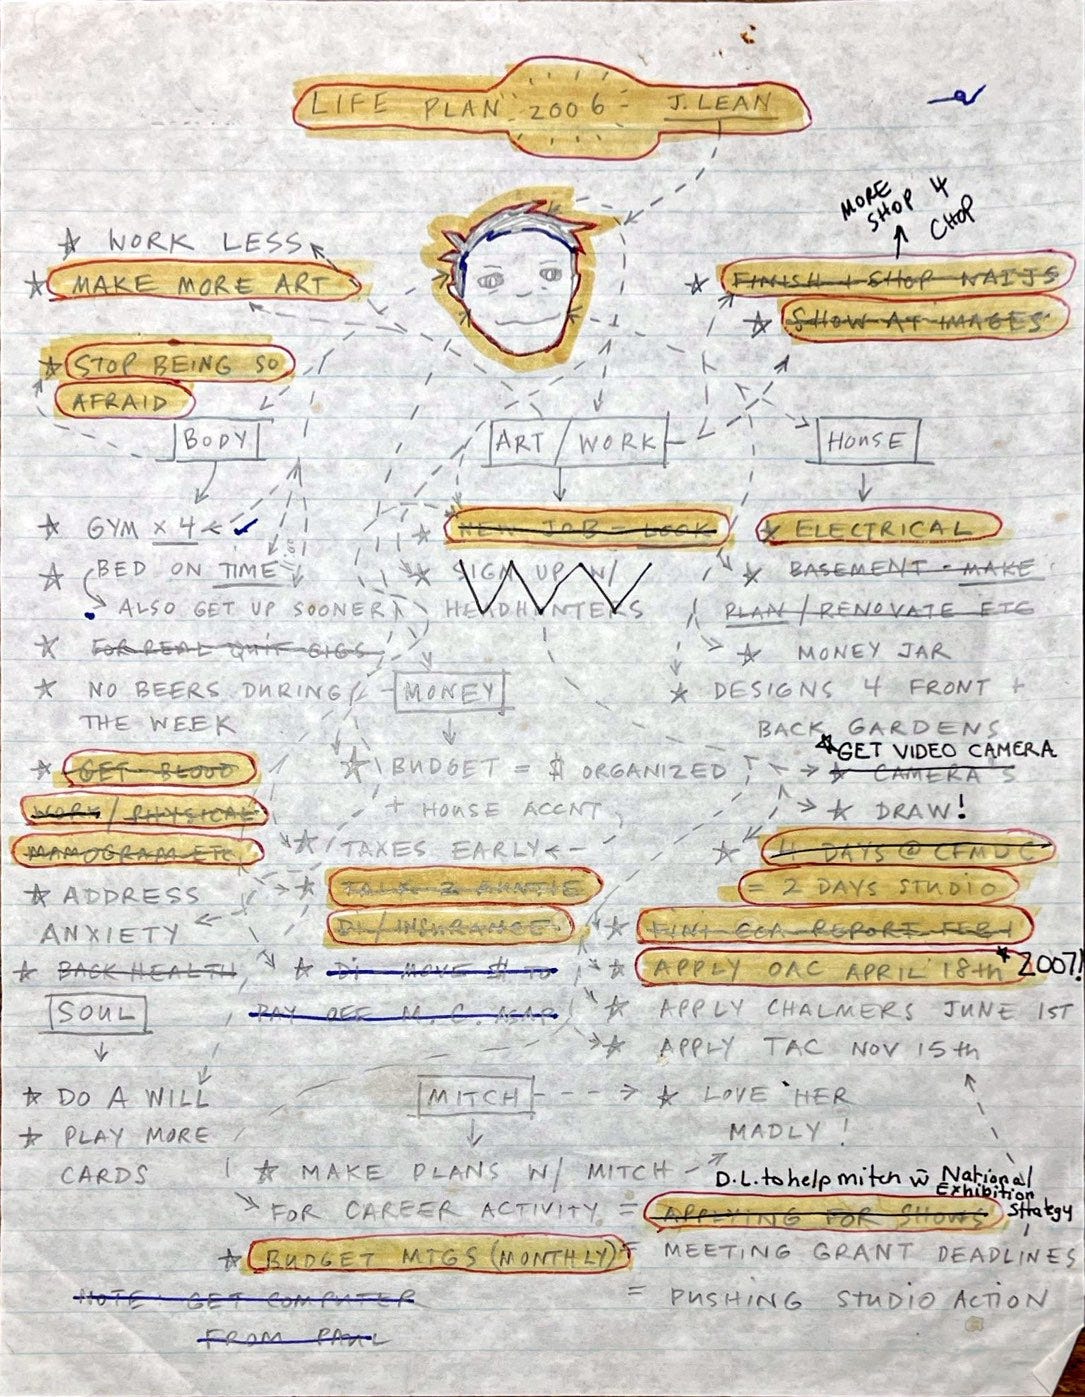 LIFE PLAN 2006 - J. LEAN
MORE
SHOP 4
CHOP
☆ WORK LESS
☆ MAKE MORE ART
☆ FINISH + SHOP NAIJS
☆ SHOW AT IMAGES
☆ STOP BEING SO
AFRAID
BODY
ART / WORK
HOUSE
☆ GYM x 4 ✓
☆ BED ON TIME
ALSO GET UP SOONER
☆ FOR REAL QUIT GIGS
☆ NO BEERS DURING
THE WEEK
☆ GET BLOOD
WORK / PHYSICAL
MAMOGRAM ETC.
☆ ADDRESS
ANXIETY
☆ BACK HEALTH
SOUL
☆ DO A WILL
☆ PLAY MORE
CARDS
☆ NEW JOB - LOOK
☆ SIGN UP W/
HEADHUNTERS
MONEY
☆ BUDGET = $ ORGANIZED
+ HOUSE ACCNT
☆ TAXES EARLY
☆ TALK 2 AUNTIE
DI / INSURANCE
☆ DI - MOVE $ TO
PAY OFF M.C. ASAP
☆ ELECTRICAL
☆ BASEMENT - MAKE
PLAN / RENOVATE ETC
☆ MONEY JAR
☆ DESIGNS 4 FRONT +
BACK GARDENS
☆ GET VIDEO CAMERA
☆ CAMERA'S
☆ DRAW!
☆ 4 DAYS @ CFMDC
= 2 DAYS STUDIO
☆ FINI CCA REPORT FEB 1
☆ APPLY OAC APRIL 18th * 2007!
☆ APPLY CHALMERS JUNE 1ST
☆ APPLY TAC NOV 15th
MITCH
☆ LOVE HER
MADLY!
☆ MAKE PLANS W/ MITCH
FOR CAREER ACTIVITY
D.L. to help mitch w̄ National
Exhibition
Strategy
= APPLYING FOR SHOWS
☆ BUDGET MTGS (MONTHLY)
= MEETING GRANT DEADLINES
= PUSHING STUDIO ACTION
NOTE: GET COMPUTER
FROM PAUL